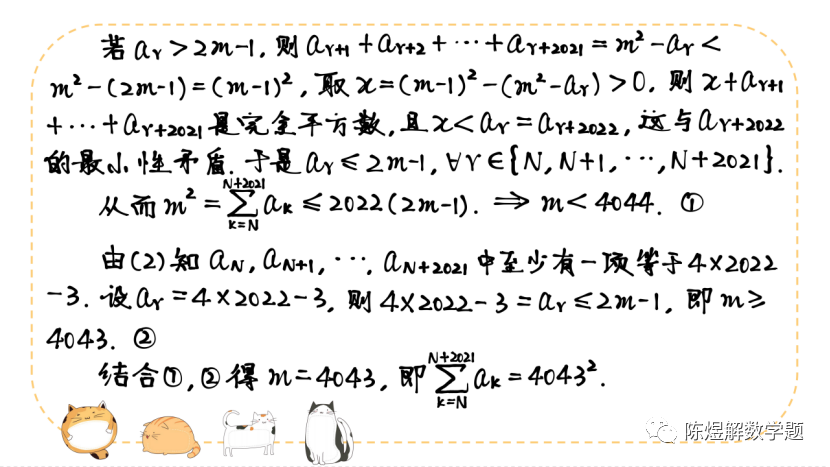 若 aᵣ > 2m-1, 则 aᵣ₊₁ + aᵣ₊₂ + ⋯ + aᵣ₊₂₀₂₁ = m² - aᵣ <
m² - (2m-1) = (m-1)², 取 x = (m-1)² - (m² - aᵣ) > 0, 则 x + aᵣ₊₁
+ ⋯ + aᵣ₊₂₀₂₁ 是完全平方数, 且 x < aᵣ = aᵣ₊₂₀₂₂, 这与 aᵣ₊₂₀₂₂
的最小性矛盾. 于是 aᵣ ≤ 2m-1, ∀r∈{N, N+1, ⋯, N+2021}.
从而 m² = ∑_{k=N}^{N+2021} aₖ ≤ 2022(2m-1). ⇒ m < 4044. ①
由(2)知 a_N, a_{N+1}, ⋯, a_{N+2021} 中至少有一项等于 4×2022
-3. 设 aᵣ = 4×2022-3, 则 4×2022-3 = aᵣ ≤ 2m-1, 即 m ≥
4043. ②
结合①,②得 m = 4043, 即 ∑_{k=N}^{N+2021} aₖ = 4043².
陈煜解数学题